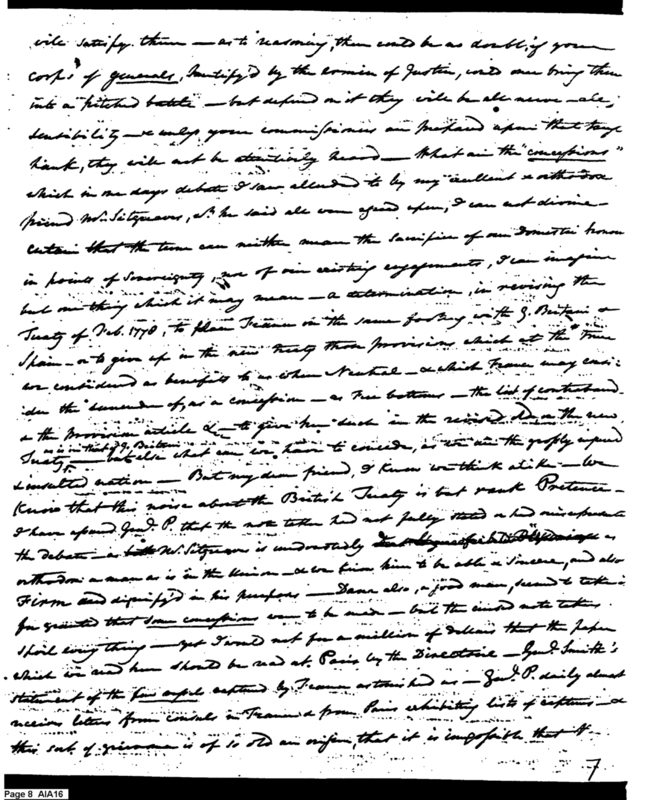 will satisfy them — as to reasoning, there could be no doubt, if your
corps of generals, fortify'd by the armies of Justice, could once bring them
into a pitched battle — but depend on it they will be all nerve — all
sensibility — & unless your commissioners are prepared upon that
they will not be attentively heard — What are the "concessions"
which in one days debate I saw alluded to by my excellent & orthodox
friend Mr. Sitgreaves, & he said all were agreed upon, I can not divine —
certain that the term can neither mean the sacrifice of our Domestic honour
in points of Sovereignty, nor of our existing engagements, I can imagine
but one thing which it may mean — a determination, in revising the
Treaty of Feb. 1778, to place France on the same footing with G. Britain &
Spain — or to give up in the new treaty those provisions which at the time
we considered as benefits to us when Neutral — & which France may consi-
der the surrender of, as a concession — as Free bottoms — the list of contraband
& the Provision article &c — to give her such in the revised or the new
as is in that of G. Britain
Treaty — but else what can we have to concede, as we are the grossly injured
& insulted nation — But my dear friend, I know we think alike — We
Know that this noise about the British Treaty is but rank Pretence —
I have assured Genl. P. that the note taker had not fully stated or had misrepresented
the debate — as Mr. Sitgreaves is undoubtedly as
orthodox a man as is in the Union — & we know him to be able & sincere, and also
Firm and dignify'd in his purposes — Dana also, a good man, seemed to take it
for granted that some concessions were to be made — but the cursed note takers
spoil every thing — yet I would not for a million of dollars that the paper
which we read here should be read at Paris by the Directoire — Genl. Smith's
statement of the few vessels captured by France astonished us — Genl. P. daily almost
receives letters from consuls in France & from Paris exhibiting lists of captures — &
this sort of grievance is of so old an origin, that it is impossible that
7
Page 8 AIA16